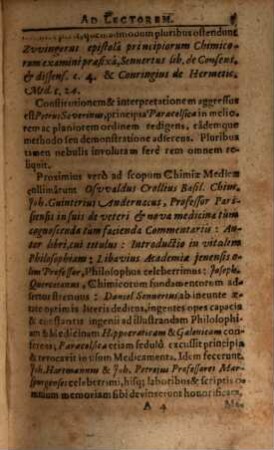 AD LECTOREM.
modum pluribus ostendunt
Zvvingerus epistola principiorum Chimico-
rum examini præfixa, Sennertus lib. de Consent.
& dissens. c. 4. & Conringius de Hermetic.
Med. c. 24.
Constitutionem & interpretationem aggressus
est Petrus Severinus, principia Paracelsica in melio-
rem ac planiorem ordinem redigens, eademque
methodo seu demonstratione asserens. Pluribus
tamen nebulis involutam ferè rem omnem re-
liquit.
Proximius verò ad scopum Chimiæ Medicæ
collimârunt Osvvaldus Crollius Basil. Chim.
Joh. Guinterius Andernacus, Professor Pari-
siensis in suis de veteri & nova medicina tùm
cognoscenda tum facienda Commentariis: Au-
tor libri, cui titulus: Introductio in vitalem
Philosophiam: Libavius Academiæ Jenensis
olim Professor, Philosophus celeberrimus: Joseph.
Quercetanus, Chimicorum fundamentorum ad-
sertor strenuus: Daniel Sennertus ab ineunte æ-
tate optimis literis deditus, ingentes opes capacis
& constantis ingenii ad illustrandam Philosophi-
am & Medicinam Hippocraticam & Galenicam con-
ferens, Paracelsica etiam sedulò excussit principia
& revocavit in usum Medicamenta. Idem fecerunt
Joh. Hartmannus & Joh. Petrejus Professores Mar-
purgenses celebertimi, hisq; laboribus & scriptis o-
mnium memoriam sibi devinxerunt honorificam.
A 4